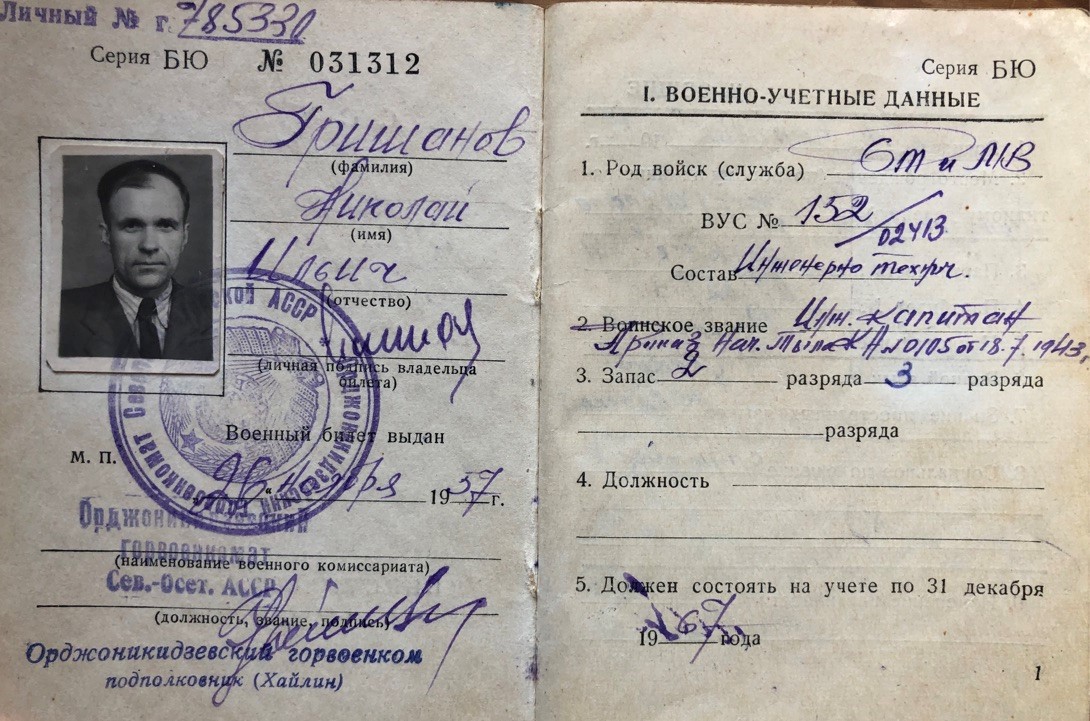 Личный № г. 785330
Серия БЮ № 031312
Гришанов
(фамилия)
Николай
(имя)
Ильич
(отчество)
(личная подпись владельца
билета)
Военный билет выдан
М. П.
26 ноября 1957 г.
Орджоникидзевский
горвоенкомат
(наименование военного комиссариата)
Сев.-Осет. АССР
(должность, звание, подпись)
Орджоникидзевский горвоенком
подполковник (Хайлин)
Серия БЮ
I. ВОЕННО-УЧЕТНЫЕ ДАННЫЕ
1. Род войск (служба)
ВУС № 152/02413
Состав Инженерно технич.
2. Воинское звание Инж. капитан
Приказ Нач. Тыла КА №0105 от 18.7.1943
3. Запас 2 разряда 3 разряда
разряда
4. Должность
5. Должен состоять на учете по 31 декабря
1967 года
1